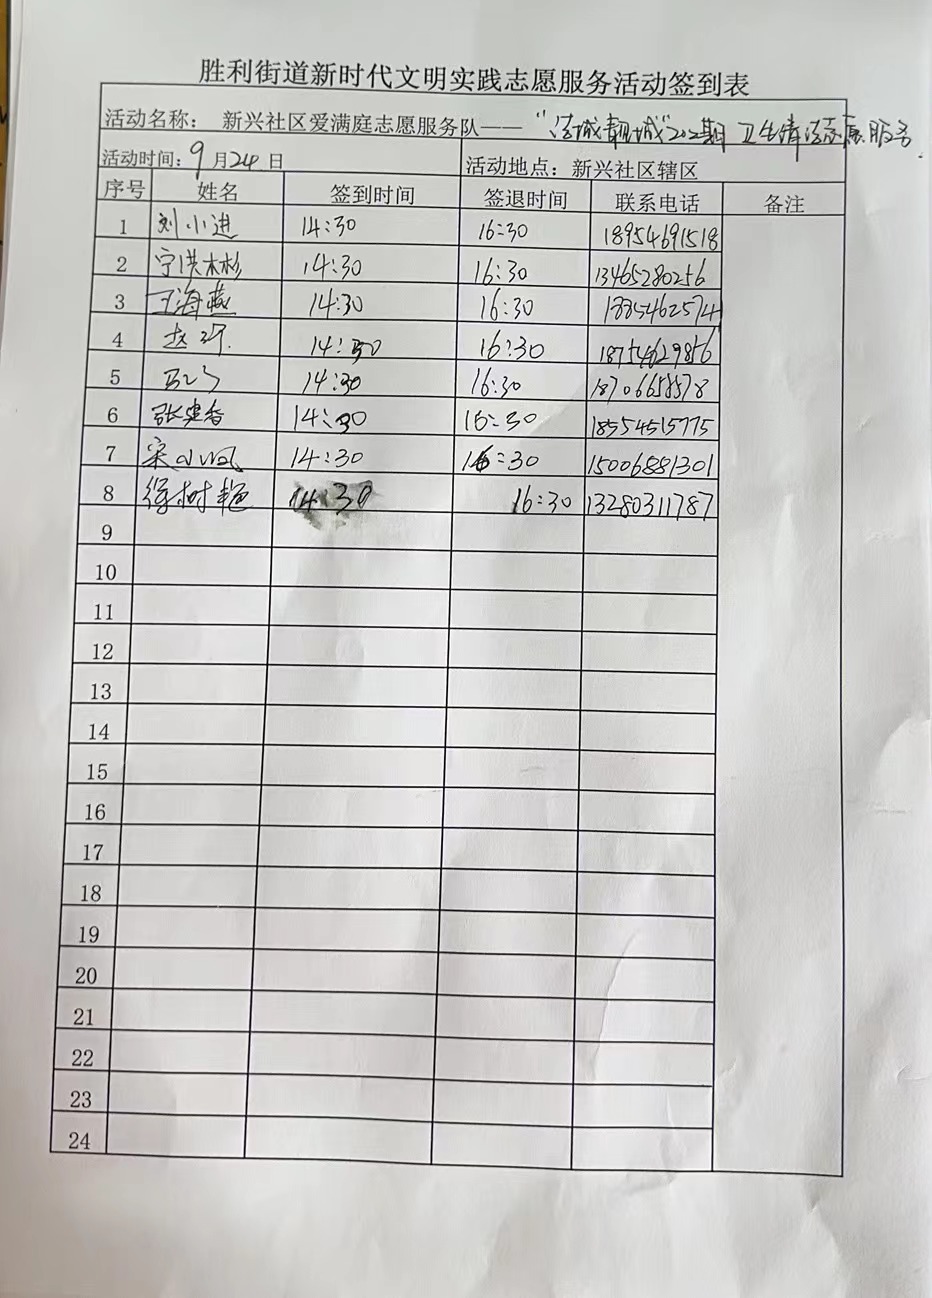 胜利街道新时代文明实践志愿服务活动签到表
活动名称： 新兴社区爱满庭志愿服务队——“洁城靓城”202期 卫生清洁志愿服务.
活动时间：9月24日 活动地点：新兴社区辖区
序号 姓名 签到时间 签退时间 联系电话 备注
1 刘小进 14:30 16:30 18954691518
2 宁洪彬 14:30 16:30 13465280256
3 王海燕 14:30 16:30 1885462574
4 赵 14:30 16:30 18754629856
5 14:30 16:30 18706658578
6 张忠香 14:30 16:30 18554515775
7 宋小凤 14:30 16:30 15006881301
8 徐树艳 14:30 16:30 13280311787
9
10
11
12
13
14
15
16
17
18
19
20
21
22
23
24